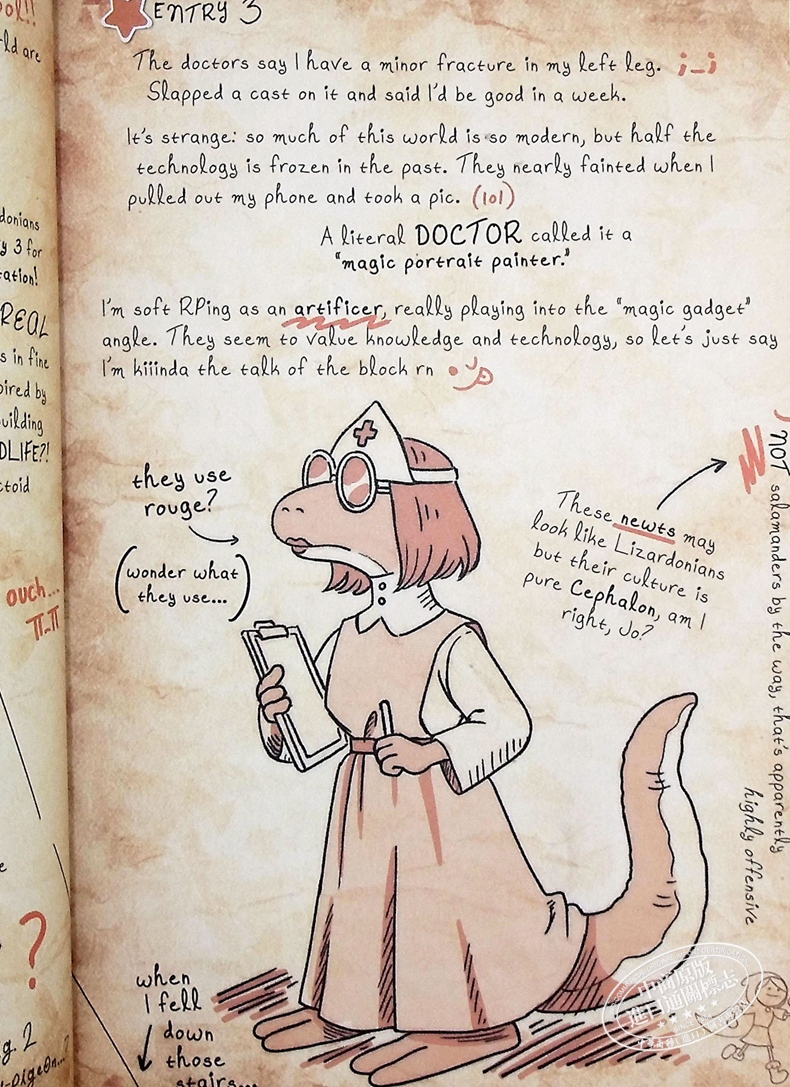 ool!!
rld are
donians
y 3 for
ation!
REAL
s in fine
pired by
uilding
DLIFE?!
ctoid
ouch...
π_π
?
g. 2
ENTRY 3
The doctors say I have a minor fracture in my left leg. ;_;
Slapped a cast on it and said I'd be good in a week.
It's strange: so much of this world is so modern, but half the
technology is frozen in the past. They nearly fainted when I
pulled out my phone and took a pic. (lol)
A literal DOCTOR called it a
"magic portrait painter."
I'm soft RPing as an artificer, really playing into the "magic gadget"
angle. They seem to value knowledge and technology, so let's just say
I'm kiiinda the talk of the block rn
they use
rouge?
(wonder what
they use...)
These newts may
look like Lizardonians
but their culture is
pure Cephalon, am I
right, Jo?
NOT salamanders by the way, that's apparently
highly offensive
when
I fell
down
those
stairs...
中商原版
進口通關標志